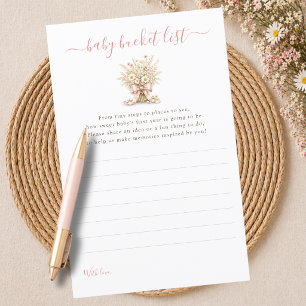 baby bucket list
From tiny steps to places to see,
how sweet baby's first year is going to be.
Please share an idea or a fun thing to do,
to help us make memories inspired by you!
With love,